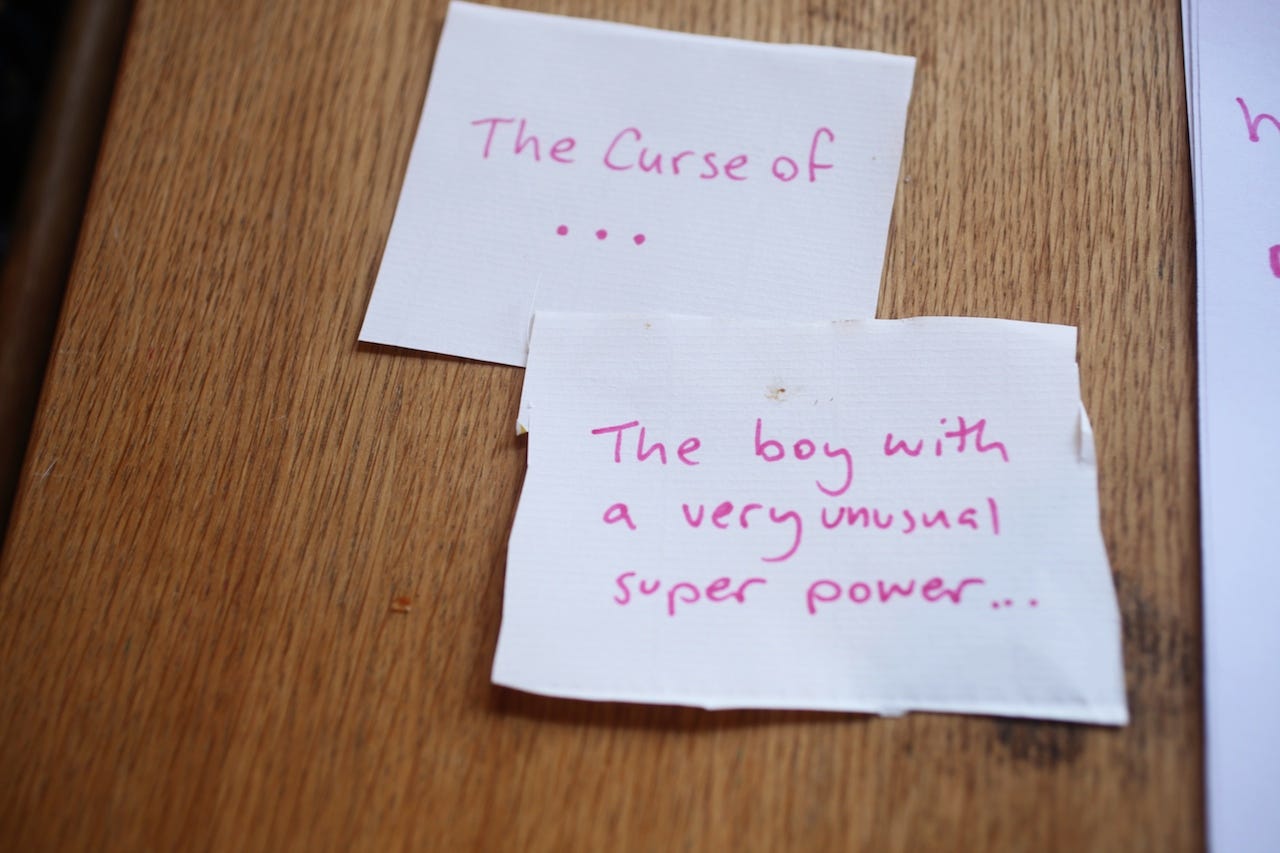 The Curse of
...
The boy with
a very unusual
super power...